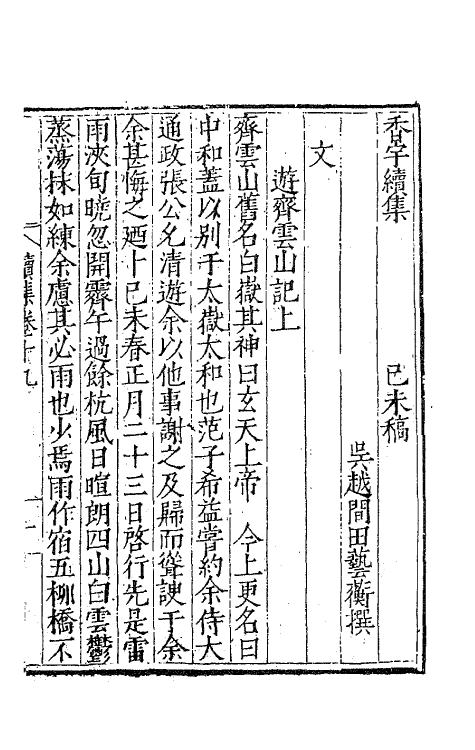 香宇續集 己未稿
吳越間田藝蘅撰
文
遊齊雲山記上
齊雲山舊名白嶽其神曰玄天上帝 今上更名曰
中和蓋以别于太嶽太和也范子希益嘗約余侍大
通政張公允清遊余以他事謝之及歸而聳諛于余
余甚悔之廼卜己未春正月二十三日啓行先是雷
雨浹旬曉忽開霽午過餘杭風日暄朗四山白雲鬱
蒸蕩抹如練余慮其必雨也少焉雨作宿五柳橋不
續集卷十九